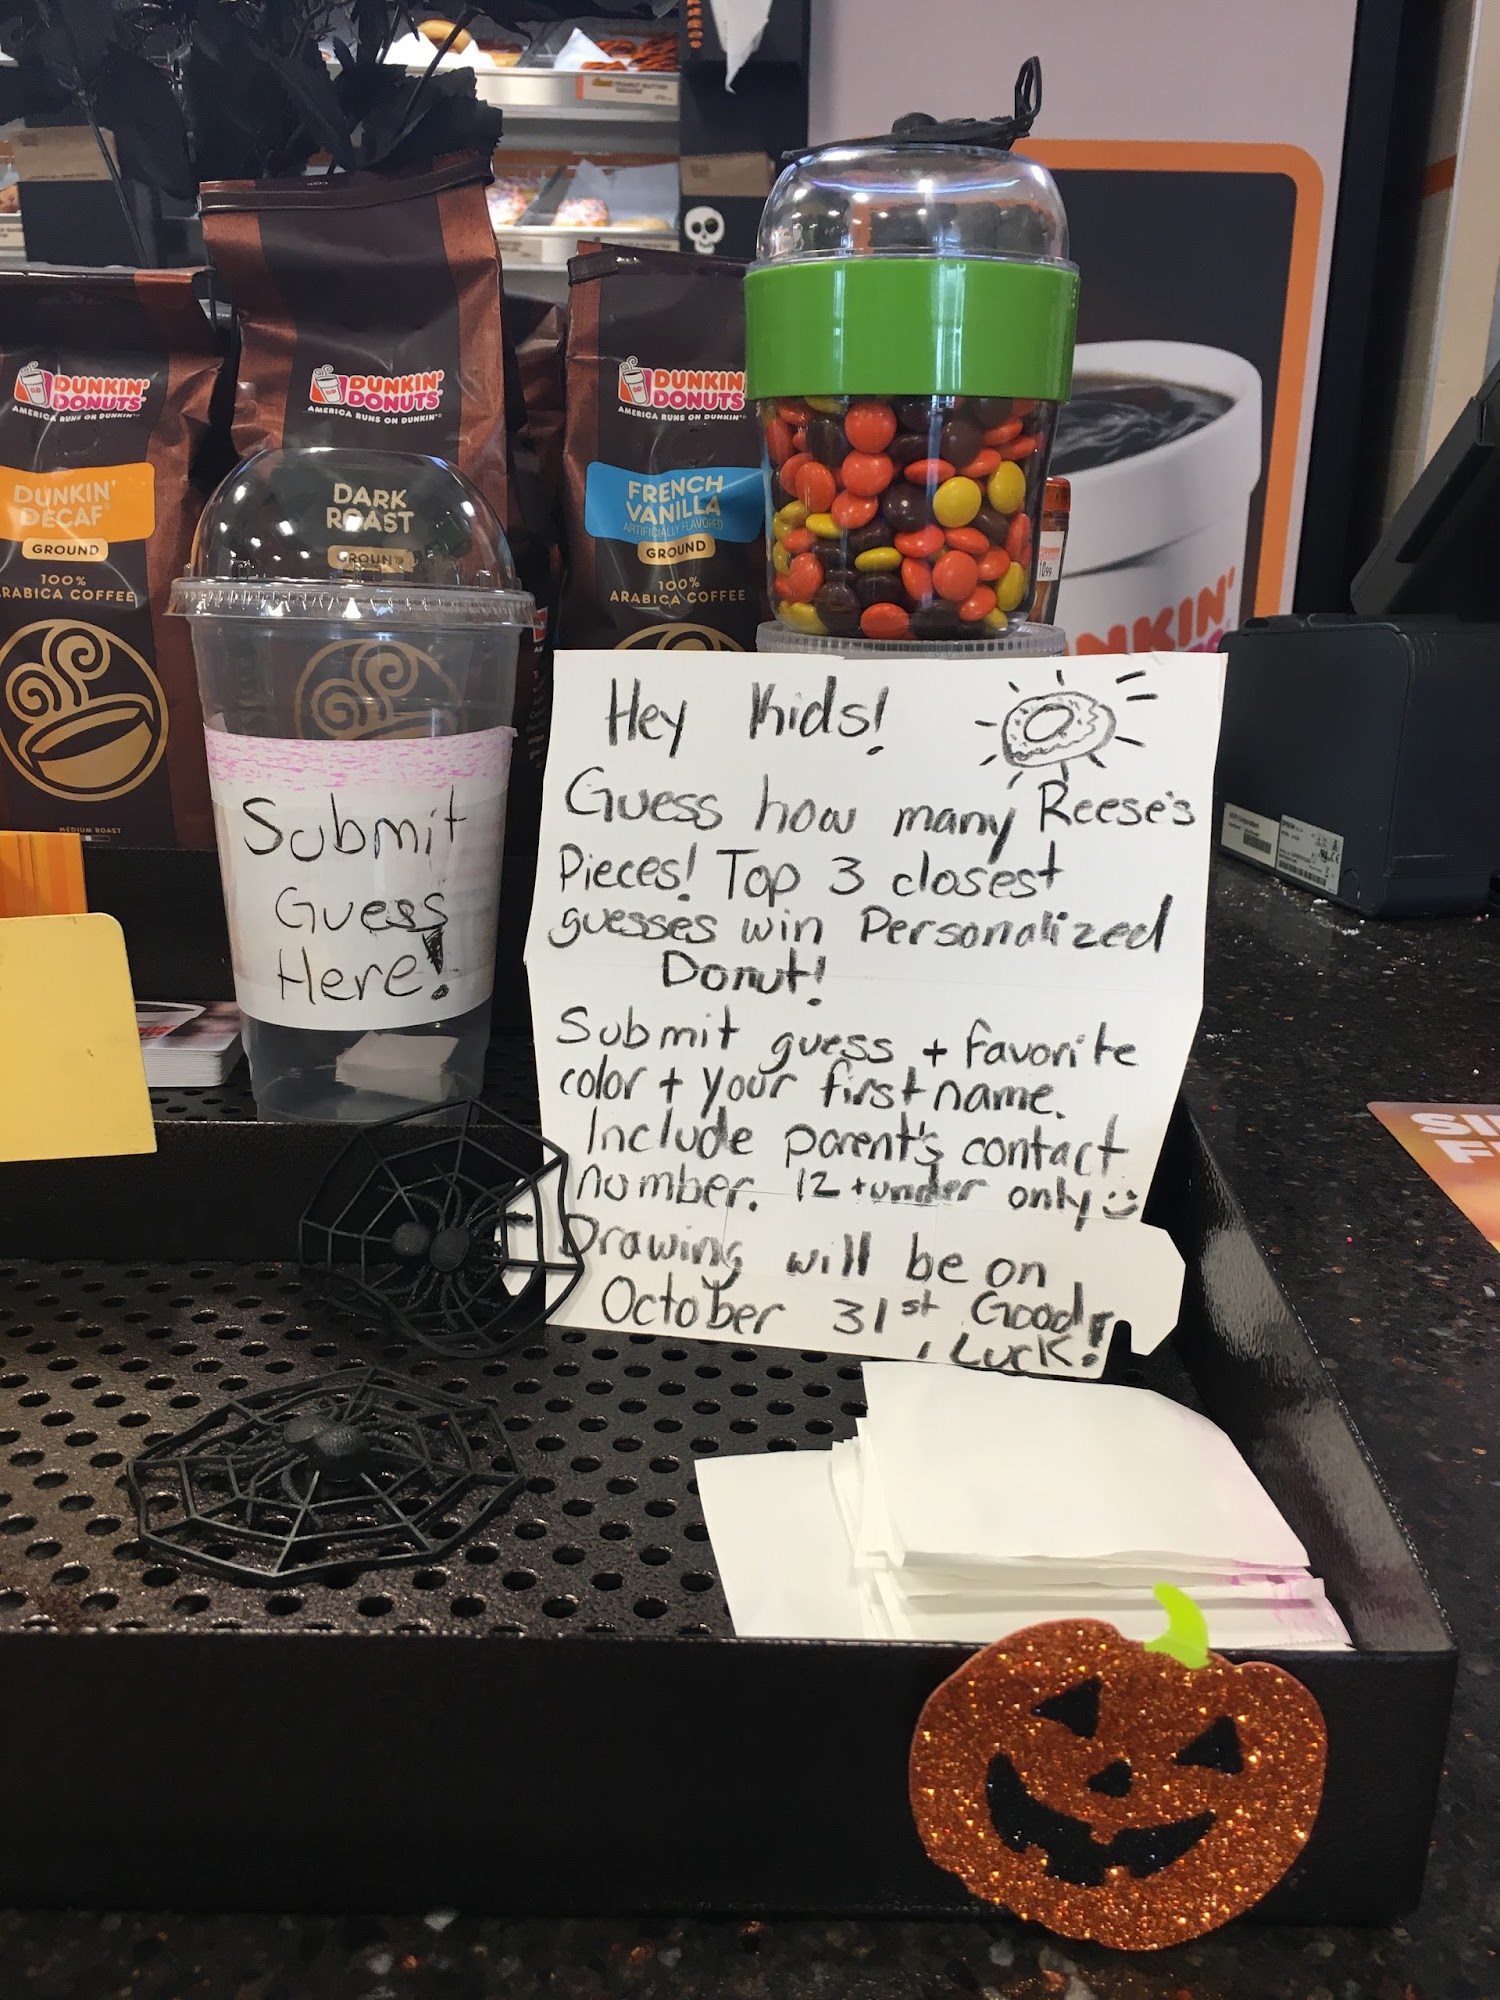 DUNKIN'
DONUTS
AMERICA RUNS ON DUNKIN'
DUNKIN'
DECAF
GROUND
100%
ARABICA COFFEE
MEDIUM ROAST
DUNKIN'
DONUTS
AMERICA RUNS ON DUNKIN'
DARK
ROAST
GROUND
DUNKIN'
DONUTS
AMERICA RUNS ON DUNKIN'
FRENCH
VANILLA
ARTIFICIALLY FLAVORED
GROUND
100%
ARABICA COFFEE
PEANUT BUTTER
NKIN'
Submit
Guess
Here!
Hey Kids!
Guess how many Reese's
Pieces! Top 3 closest
guesses win Personalized
Donut!
Submit guess + favorite
color + your first name.
Include parent's contact
number. 12 + under only
Drawing will be on
October 31st Good
Luck!